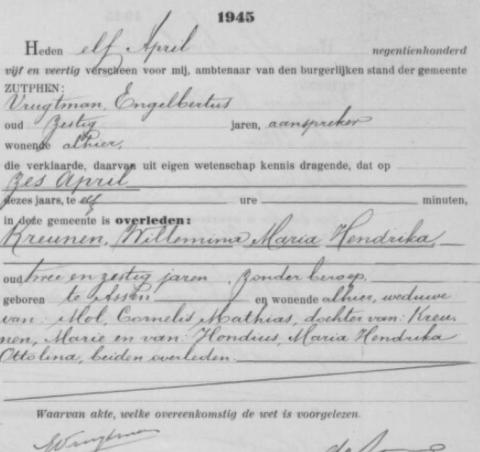 1945
Heden elf April negentienhonderd
vijf en veertig verscheen voor mij, ambtenaar van den burgerlijken stand der gemeente
ZUTPHEN:
Vrugtman, Engelbertus
oud zestig jaren, aanspreker
wonende alhier,
die verklaarde, daarvan uit eigen wetenschap kennis dragende, dat op
zes April
dezes jaars, te elf ure minuten,
in deze gemeente is overleden:
Kreunen, Willemina Maria Hendrika
oud twee en zestig jaren, zonder beroep,
geboren te Assen en wonende alhier, weduwe
van: Mol, Cornelis Mathias, dochter van: Kreu-
nen, Marie en van: Hondius, Maria Hendrika
Ottolina, beiden overleden.
Waarvan akte, welke overeenkomstig de wet is voorgelezen.
EVrugtman